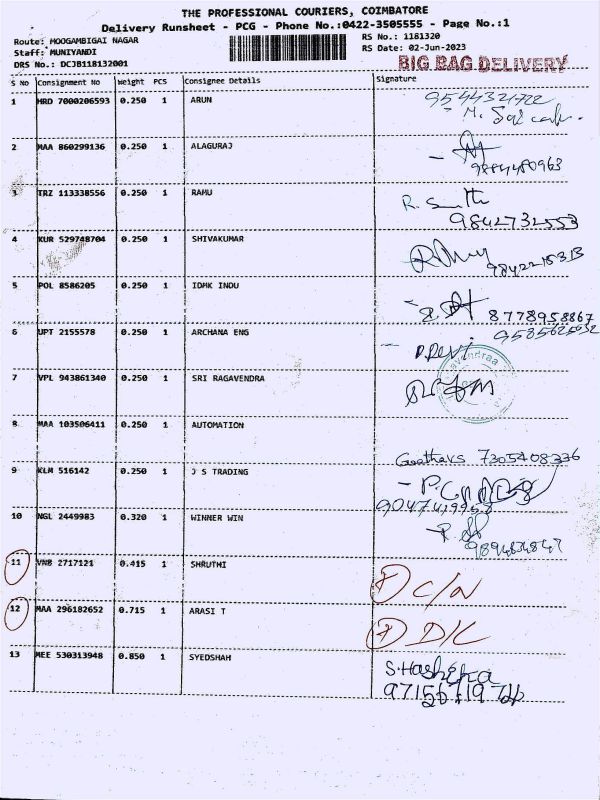 THE PROFESSIONAL COURIERS, COIMBATORE
Delivery Runsheet - PCG - Phone No.:0422-3505555 - Page No.:1
Route: MOOGAMBIGAI NAGAR RS No.: 1181320
Staff: MUNIYANDI RS Date: 02-Jun-2023
DRS No.: DCJB118132001 BIG BAG DELIVERY
S No Consignment No Weight PCS Consignee Details Signature
1 HRD 7000206593 0.250 1 ARUN 9544321722
M.
2 MAA 860299136 0.250 1 ALAGURAJ
9884480963
3 TRZ 113338556 0.250 1 RAMU R.
9842732553
4 KUR 529748704 0.250 1 SHIVAKUMAR
9842215313
5 POL 8586205 0.250 1 IDHK INDU
8778958867
6 UPT 2155578 0.250 1 ARCHANA ENG
P.Revi
7 VPL 943861340 0.250 1 SRI RAGAVENDRA
8 MAA 103506411 0.250 1 AUTOMATION
7305408336
9 KLM 516142 0.250 1 J S TRADING
10 NGL 2449983 0.320 1 WINNER WIN
11 VNB 2717121 0.415 1 SHRUTHI C/N
12 MAA 296182652 0.715 1 ARASI T D/L
13 MEE 530313948 0.850 1 SYEDSHAH